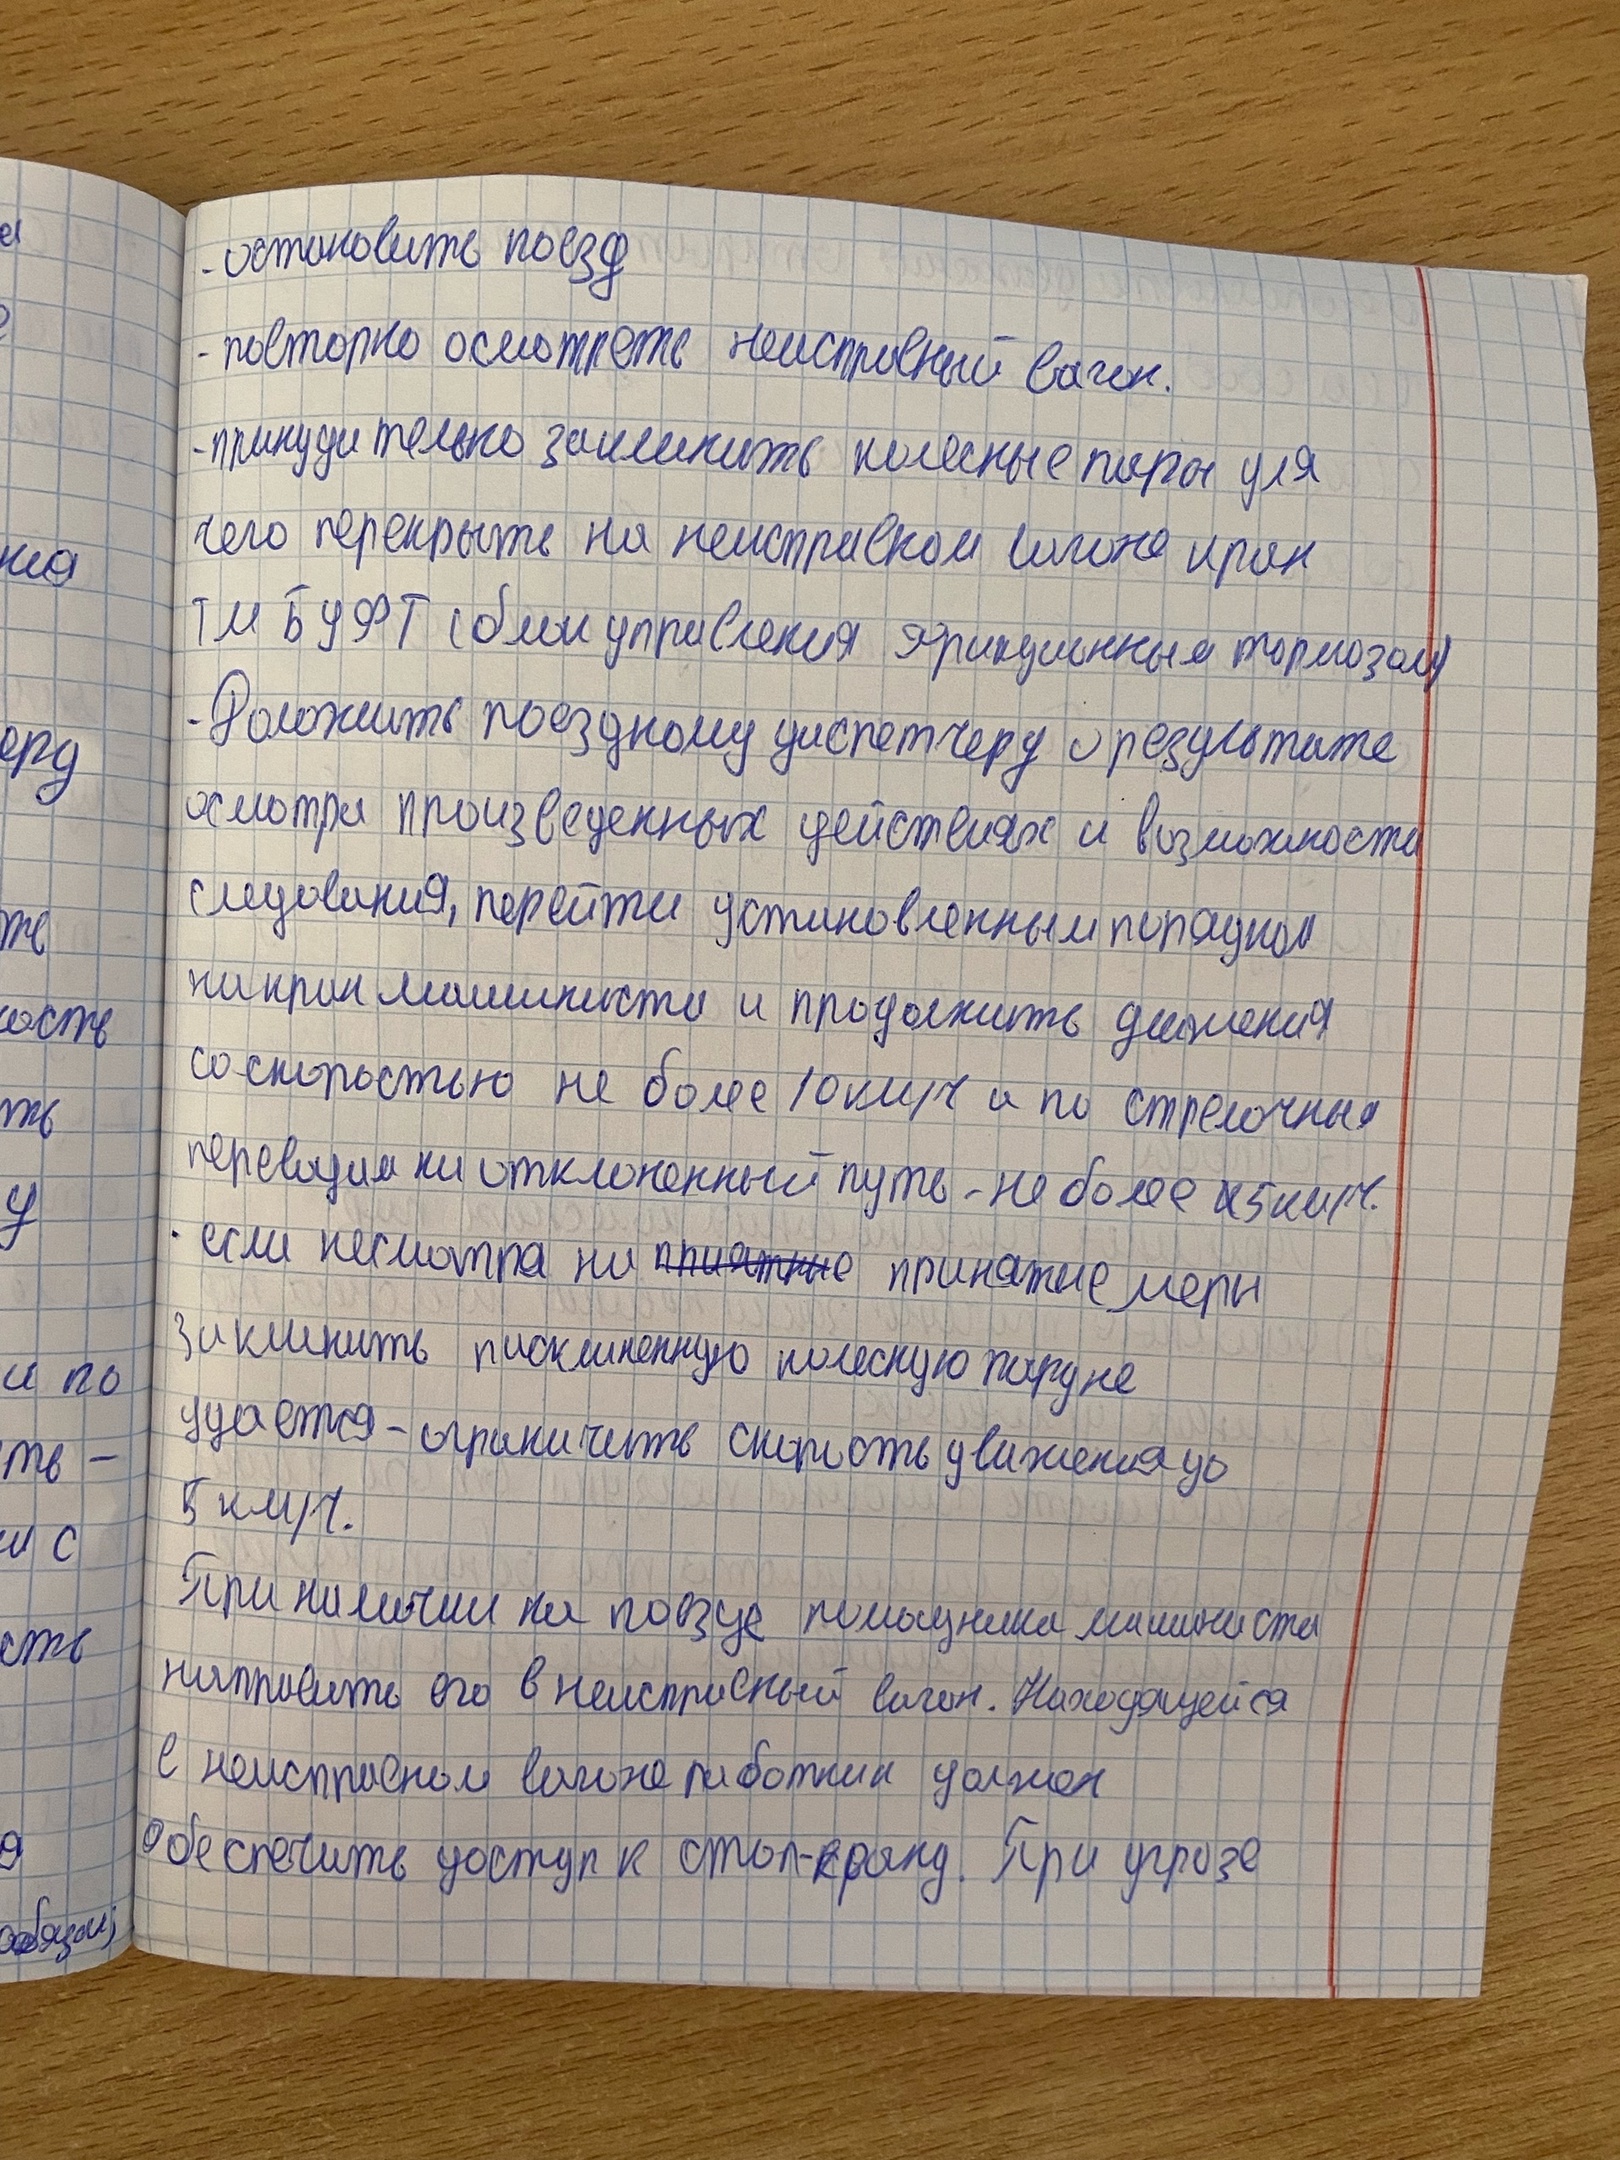 - остановить поезд
- повторно осмотреть неисправный вагон.
- принудительно заклинить колесные пары для
чего перекрыть на неисправном вагоне кран
ТМ БУФТ (блок управления фрикционным тормозом)
- Доложить поездному диспетчеру о результате
осмотра произведенных действиях и возможности
следования, перейти установленным порядком
на кран машиниста и продолжить движения
со скоростью не более 10 км/ч а по стрелочным
переводам на отклоненный путь - не более 5 км/ч.
· если несмотря на принятые меры
заклинить колесную пару не
удается - ограничить скорость движения до
5 км/ч.
При наличии на поезде помощника машиниста
направить его в неисправный вагон. Находящейся
в неисправном вагоне работник должен
обеспечить доступ к стоп-крану. При угрозе
ния
ость
ть
у
и по
ть -
и с
сть
я